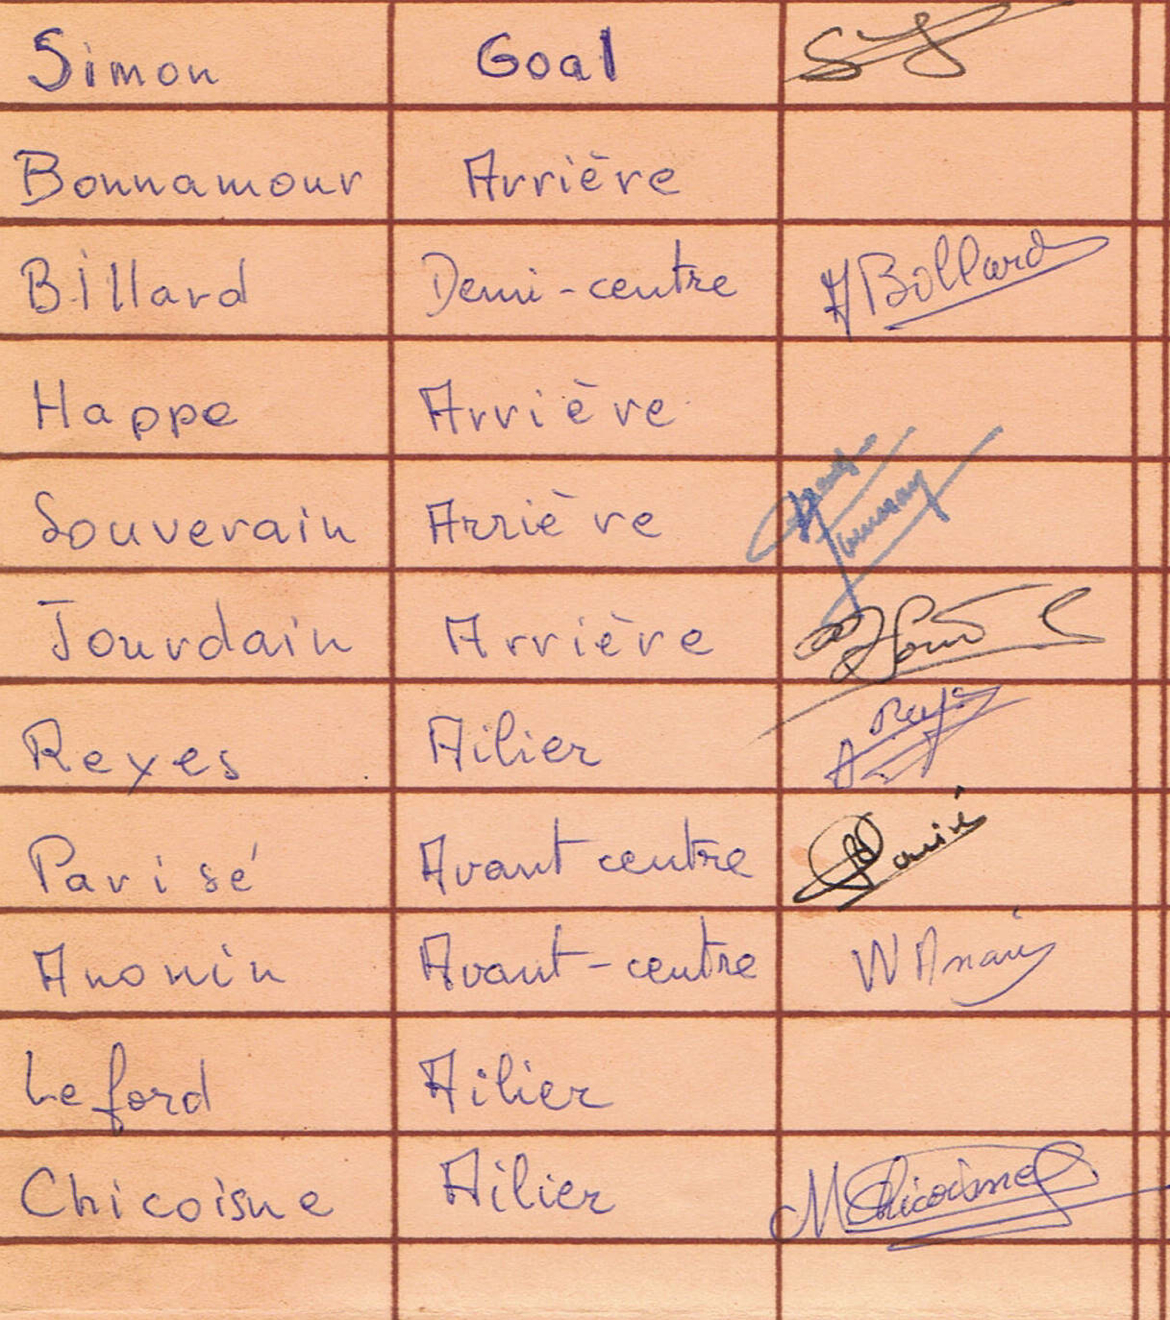 Simon Goal
Bonnamour Arrière
Billard Demi-centre A Billard
Happe Arrière
Souverain Arrière
Jourdain Arrière
Reyes Ailier A Reyes
Parisé Avant centre Parisé
Anonin Avant-centre
Leford Ailier
Chicoisne Ailier M Chicoisne